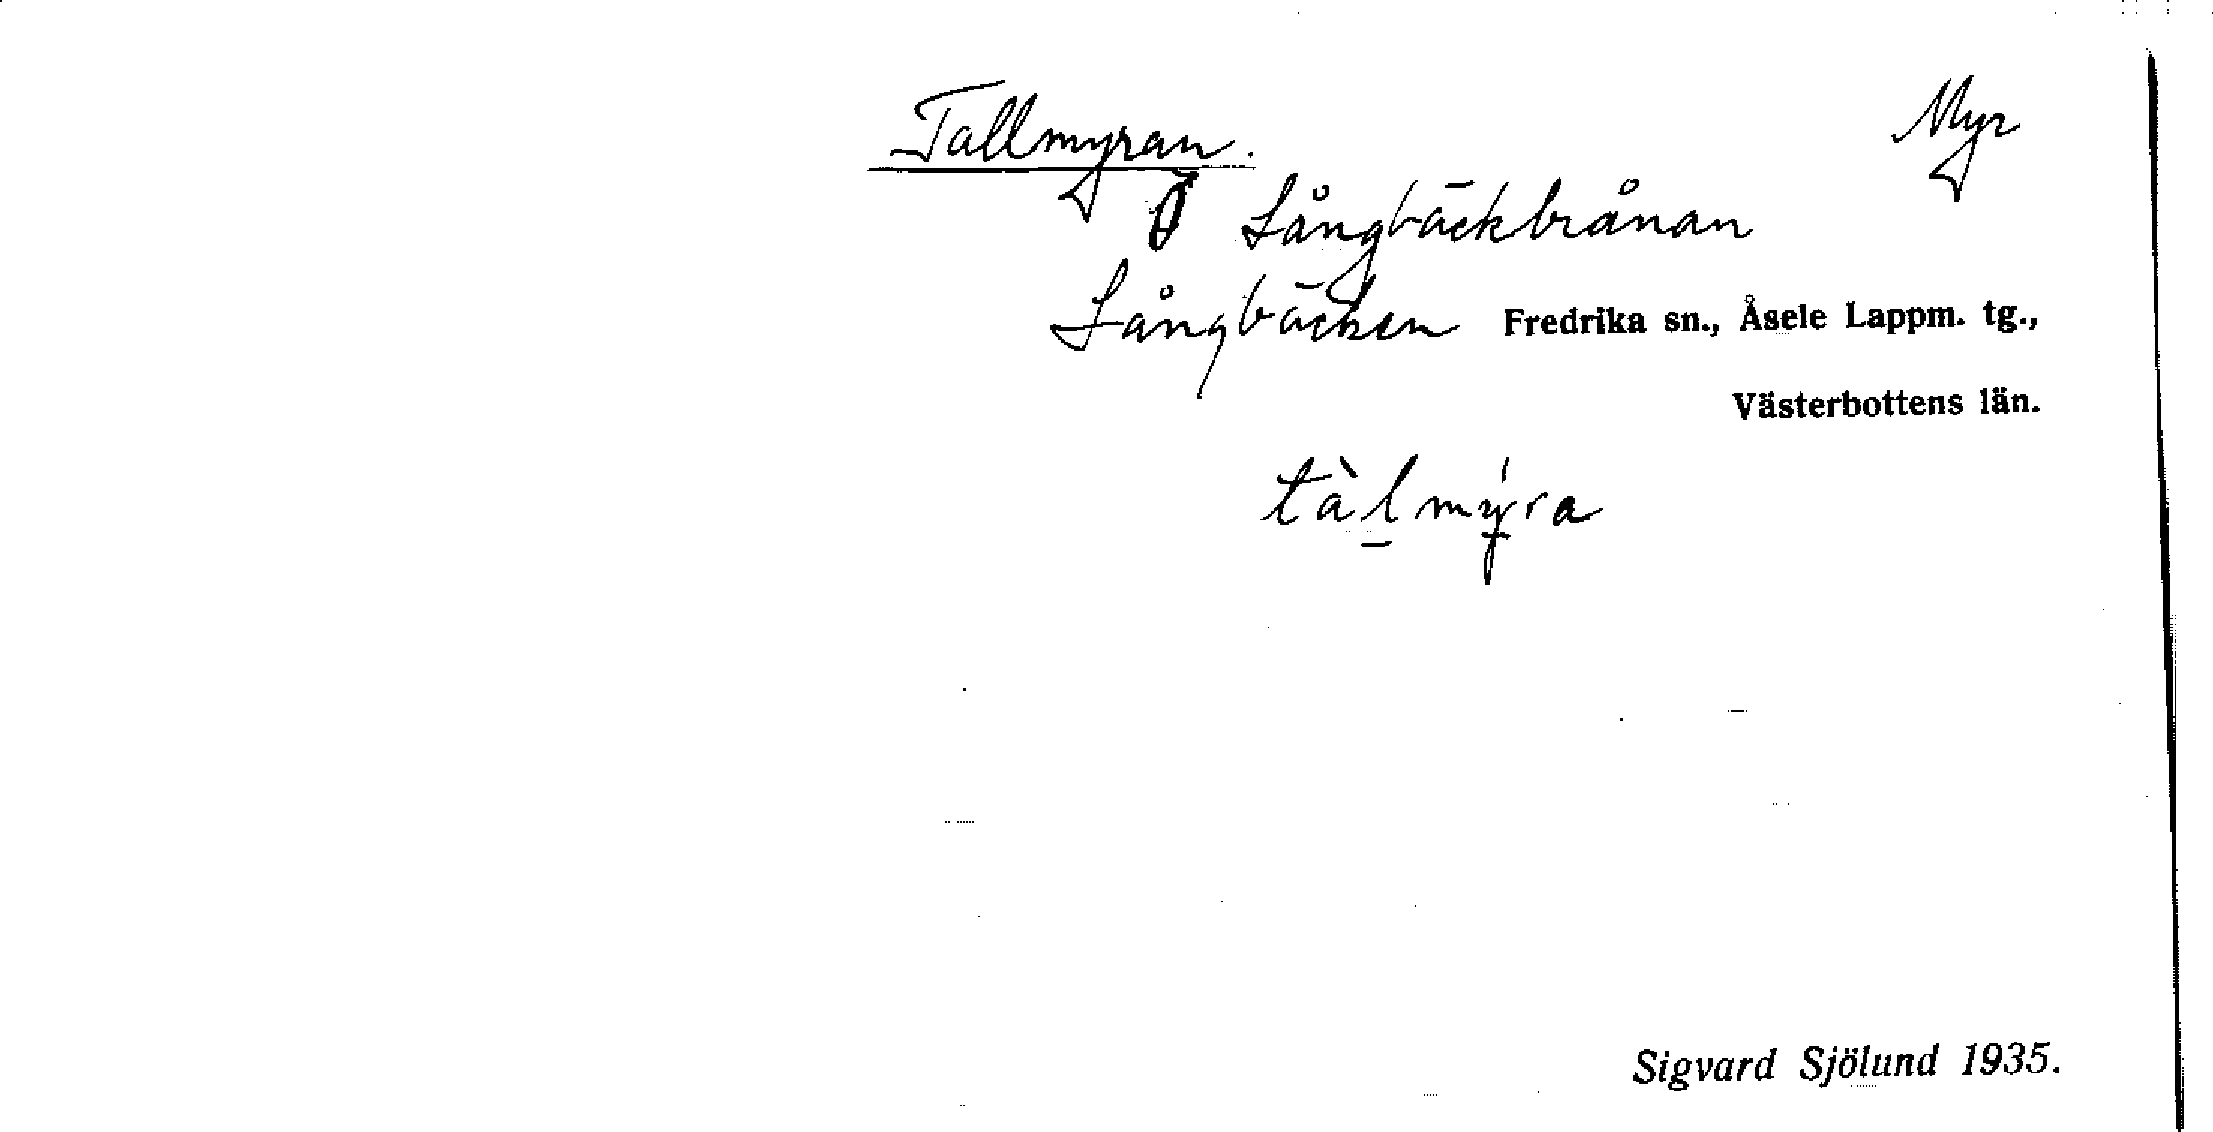 Tallmyran. Myr
Långbäckbrånan
Långbäcken Fredrika sn., Åsele Lappm. tg.,
Västerbottens län.
tàl̠mýra
Sigvard Sjölund 1935.